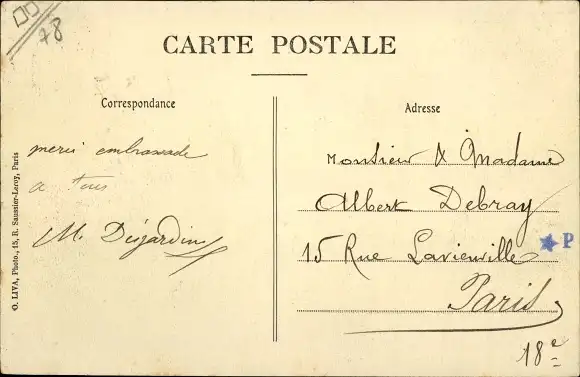 78
CARTE POSTALE
Correspondance
merci embrassade
a tous
M. Desjardins
O. LIVA, Photo., 15, R. Saussier-Leroy, Paris
Adresse
Monsieur & Madame
Albert Debray
15 Rue Lavieuville
Paris
18e
P